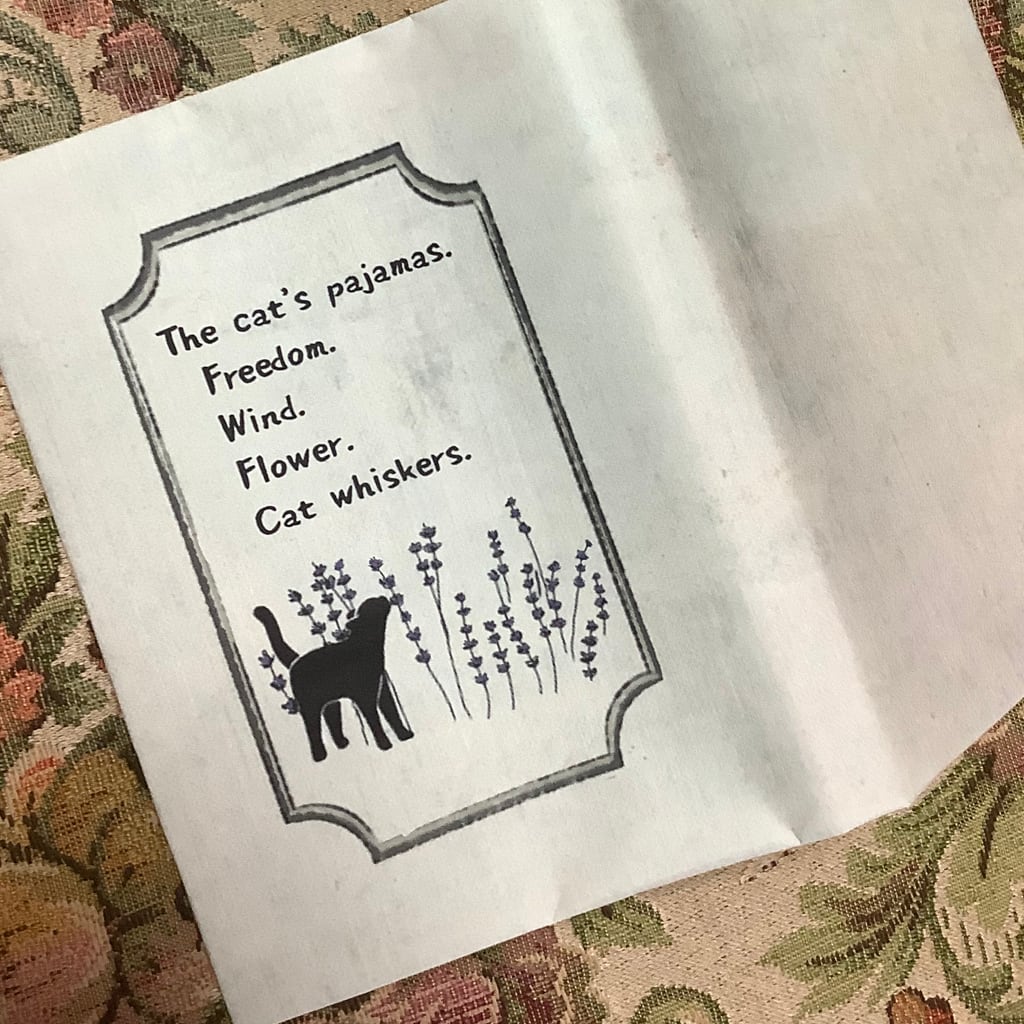 The cat's pajamas.
Freedom.
Wind.
Flower.
Cat whiskers.